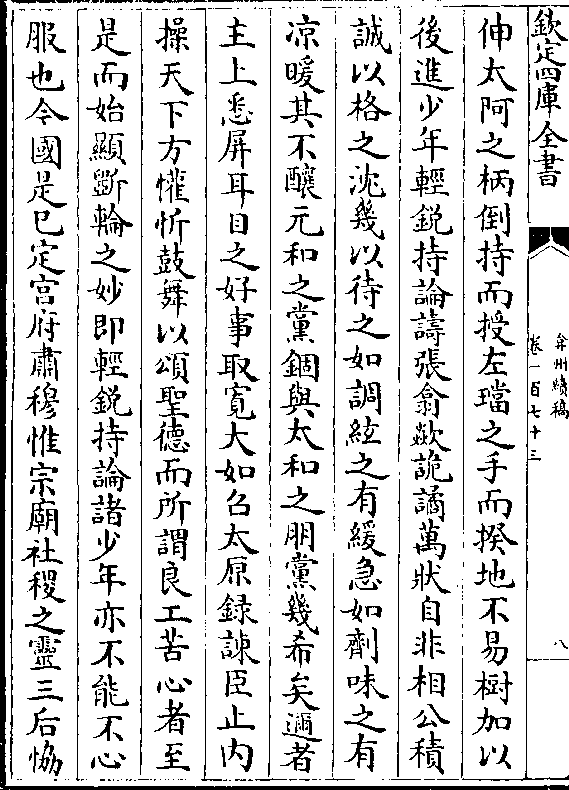 欽定四庫全書
弇州續稿
卷一百七十三
八
伸太阿之柄倒持而授左璫之手而揆地不易樹加以
後進少年輕銳持論譸張翕歘詭譎萬狀自非相公積
誠以格之沈幾以待之如調絃之有緩急如劑味之有
凉暖其不釀元和之黨錮與太和之朋黨幾希矣邇者
主上悉屏耳目之好事取寛大如召太原録諫臣止内
操天下方懽忻鼓舞以頌聖德而所謂良工苦心者至
是而始顯斷輪之妙即輕銳持論諸少年亦不能不心
服也令國是已定宮府肅穆惟宗廟社稷之靈三后恊